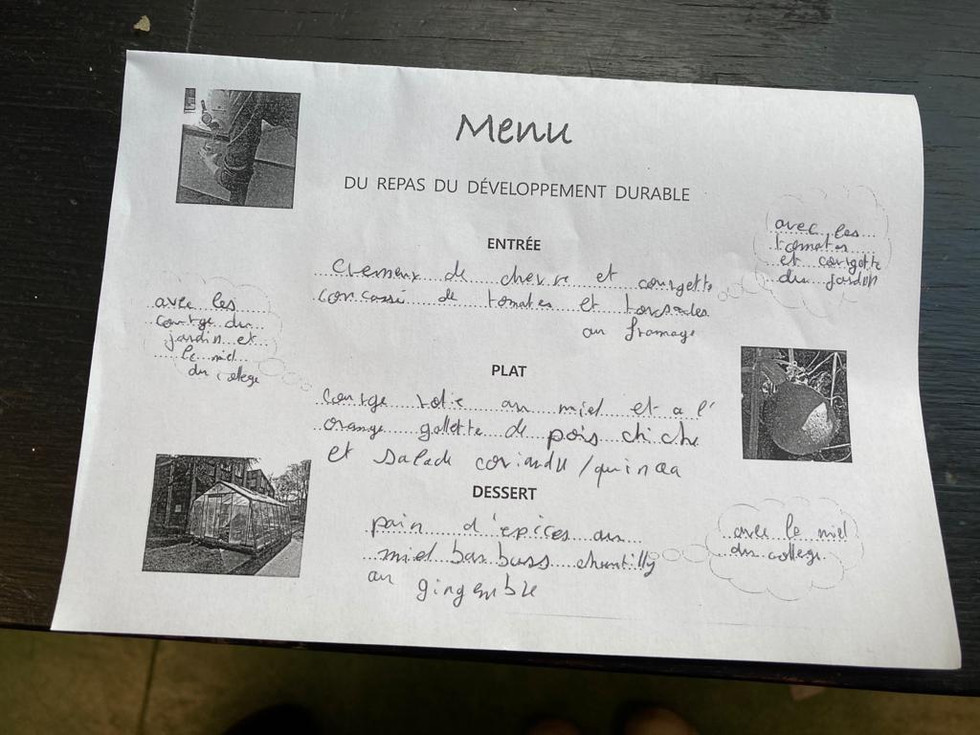 Menu
DU REPAS DU DÉVELOPPEMENT DURABLE
ENTRÉE
Cremeux de chevre et courgette
concassé de tomates et torsades
au fromage
avec les
tomates
et courgette
du jardin
avec les
courge du
jardin et
le miel
du college
PLAT
Courge rotie au miel et a l'
orange gallette de pois chiche
et salade coriandre/quinoa
DESSERT
pain d'epices au
miel chantilly
au gingembre
avec le miel
du college